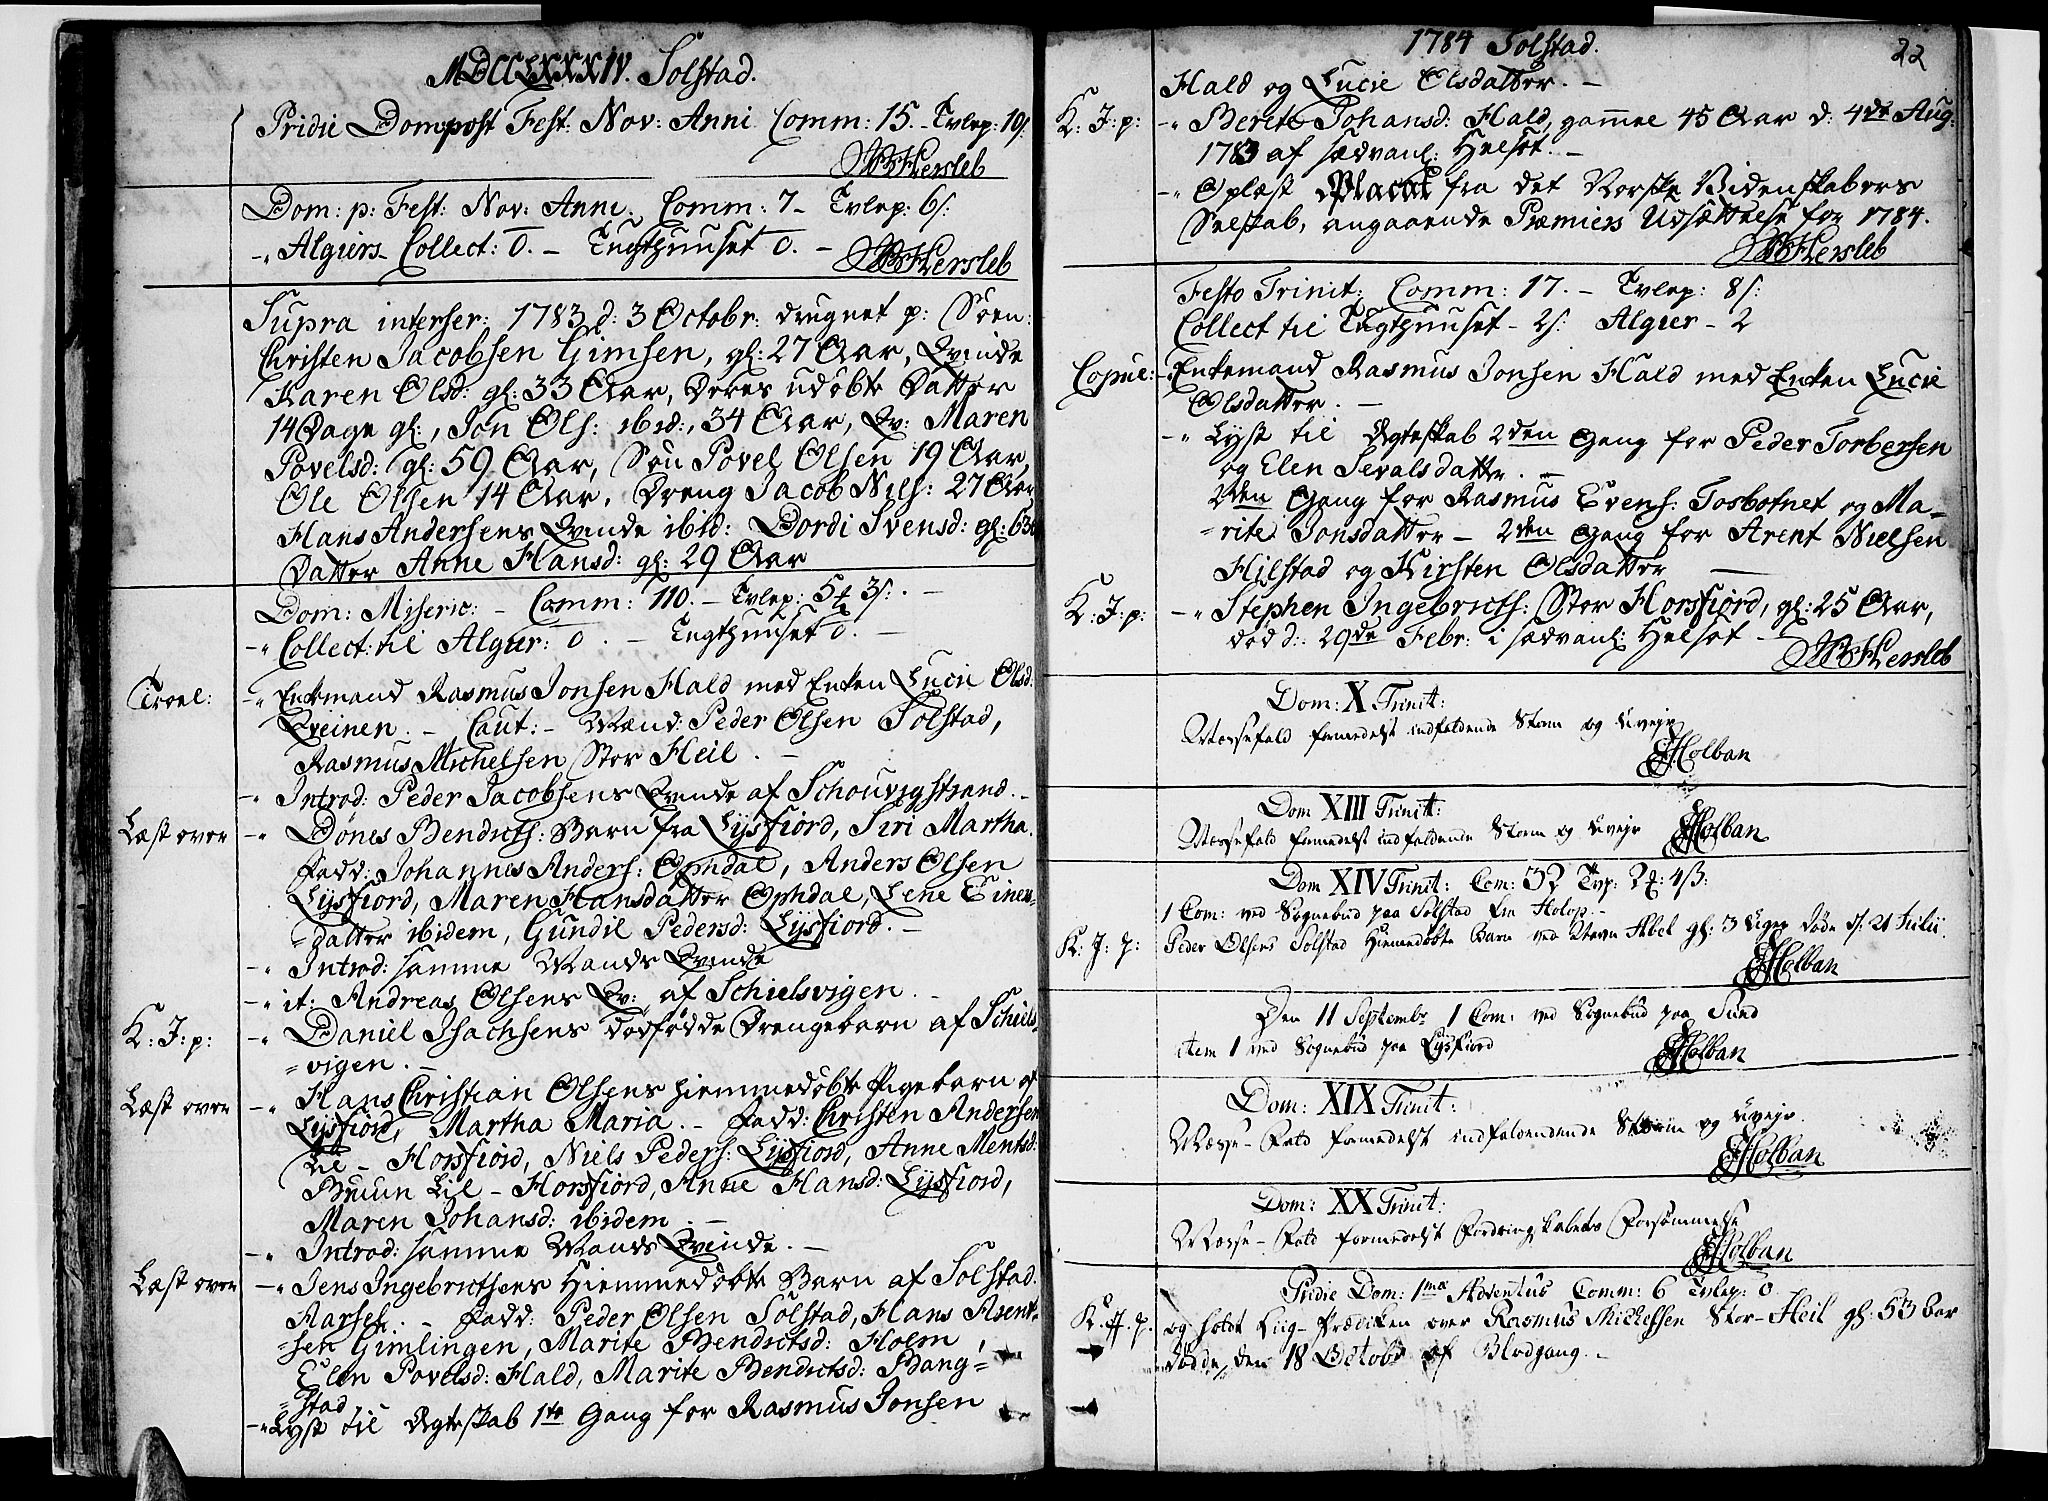 MDCCLXXXIV. Solstad.
Pridie Dom post Fest: Nov: Anni Comm: 15. Tvlep: 19s.
Hersleb
Dom: p: Fest: Nov: Anni. Comm: 7 - Tvlep: 6s:
-" Algiers Collect: 0. - Tugthuuset 0. -
Hersleb
Supra interser: 1783 d: 3 Octobr: drugnet p: Søen:
Christen Jacobsen Gimsen, gl: 27 Aar, Qvinde
Karen Olsd: gl: 33 Aar, deres udøbte Datter
14 Dage gl:, Jon Ols: ibid:, 34 Aar, Qv: Maren
Povelsd: gl: 59 Aar, Søn Povel Olsen 19 Aar,
Ole Olsen 14 Aar, Dreng Jacob Nils: 27 Aar
Hans Andersens Qvinde ibid: Dordi Svensd: gl: 63
Datter Anne Hansd: gl: 29 Aar
Dom: Miseric: - Comm: 110. - Tvlep: 5 3s: -
-" Collect: til Algier: 0. - Tugthuuset 0. -
Trol:
-" Enkemand Rasmus Jonsen Hald med Enken Lucie Olsd:
Qveinen. - Caut: - Mænd: Peder Olsen Solstad,
Rasmus Michelsen Stor Heil. -
-" Introd: Peder Jacobsens Qvinde af Schouvigstrand. -
Læst over
-" Dønes Bendicts: Barn fra Lysfiord, Siri Martha.
Fadd: Johannes Anders: Ophdal, Anders Olsen
Lysfiord, Maren Hansdatter Ophdal, Lene Einers-
=datter ibidem, Gundil Pedersd: Lysfiord. -
-" Introd: samme Mands Qvinde
-" it: Andreas Olsens Qv: af Schielsvigen. -
K: J: p:
-" Daniel Isachsens dødfødde Drengebarn af Schiels-
=vigen. -
Læst over
-" Hans Christian Olsens hiemmedøbte Pigebarn af
Lysfiord, Martha Maria. - Fadd: Christen Andersen
Lil - Horsfiord, Niels Peders: Lysfiord, Anne Mentsd:
Bruun Lil - Horsfiord, Anne Hansd: Lysfiord,
Maren Johansd: ibidem. -
-" Introd: samme Mands Qvinde. -
Læst over
-" Jens Ingebrictsens Hiemmedøbte Barn af Solstad.
Aarseh. - Fadd: Peder Olsen Solstad, Hans Arent-
=sen Gimlingen, Marite Bendictsd: Holm,
Elen Povelsd: Hald, Marite Bendictsd: Bang-
=stad
-" Lyst til Ægteskab 1ste Gang for Rasmus Jonsen
1784 Solstad.
22
Hald og Lucie Olsdatter. -
K: J: p:
-" Berete Johansd: Hald, gammel 45 Aar d: 4de Aug:
1783 af sædvanl: Helsot. -
-" Oplæst Placat fra det Norske Videnskabers
Selskab, angaaende Præmiers Udsættelse for 1784.
Hersleb
Festo Trinit: Comm: 17. - Tvlep: 8s:
Collect til Tugthuuset - 2s: Algier - 2
Copul:
-" Enkemand Rasmus Jonsen Hald med Enken Lucie
Olsdatter. -
-" Lyst til Ægteskab 2den Gang for Peder Torbersen
og Elen Sevalsdatter. -
2den Gang for Rasmus Evens: Tosbotnet og Ma-
=rite Jonsdatter - 2den Gang for Arent Nielsen
Hilstad og Kirsten Olsdatter
K: J: p:
-" Stephen Ingebricts: Stor Horsfiord, gl: 25 Aar,
død d: 29de Febr: i sædvanl: Helsot -
Hersleb
Dom: X Trinit:
Messefald formedelst indfaldende Storm og Uvejr
Holban
Dom XIII Trinit:
Messefald formedelst indfaldende Storm og Uvejr
Holban
Dom XIV Trinit: Com: 32 Tvp: 2 4ß:
1 Com: ved Sognebud paa Solstad fra Holop. -
K: J: p:
Peder Olsens Solstad Hiemmedøbte Barn ved Navn Abel gl: 3 Uger døde d: 21 Julii
Holban
Den 11 Septembr 1 Com: ved Sognebud paa Sund
item 1 ved Sognebud paa Lysfiord
Holban
Dom: XIX Trinit:
Messe-Fald formedelst indfaldendende Storm og Uvejr.
Holban
Dom: XX Trinit:
Messe-Fald formedelst Fordringskabets Forsømmelse
Holban
Pridie Dom: 1ma Adventus Comm: 6 Tvlep: 0
og holdt Liig-Prædiken over Rasmus Michelsen Stor-Heil gl: 53 Aar
døde den 18 Octobr af Blodgang. -